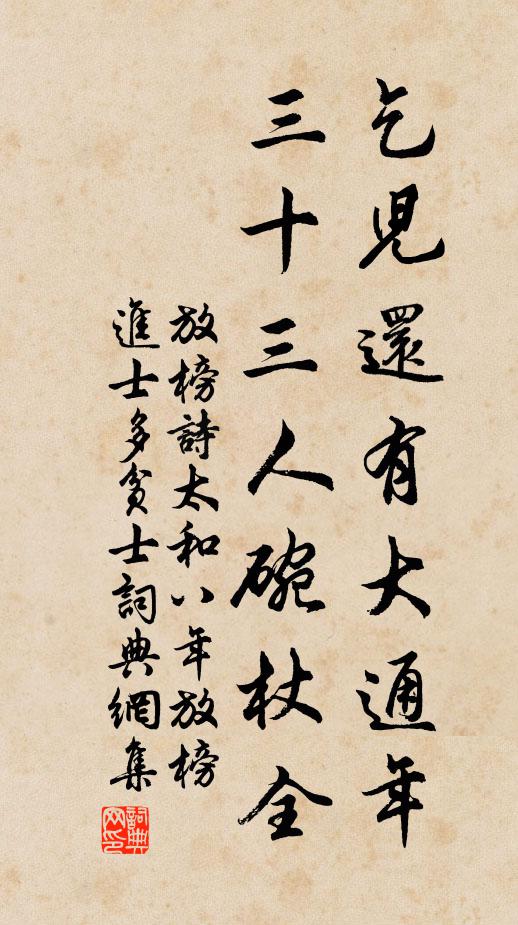 乞兒還有大通年
三十三人碗杖全
放榜詩太和八年放榜
進士多貧士詞典網集
詞典网印